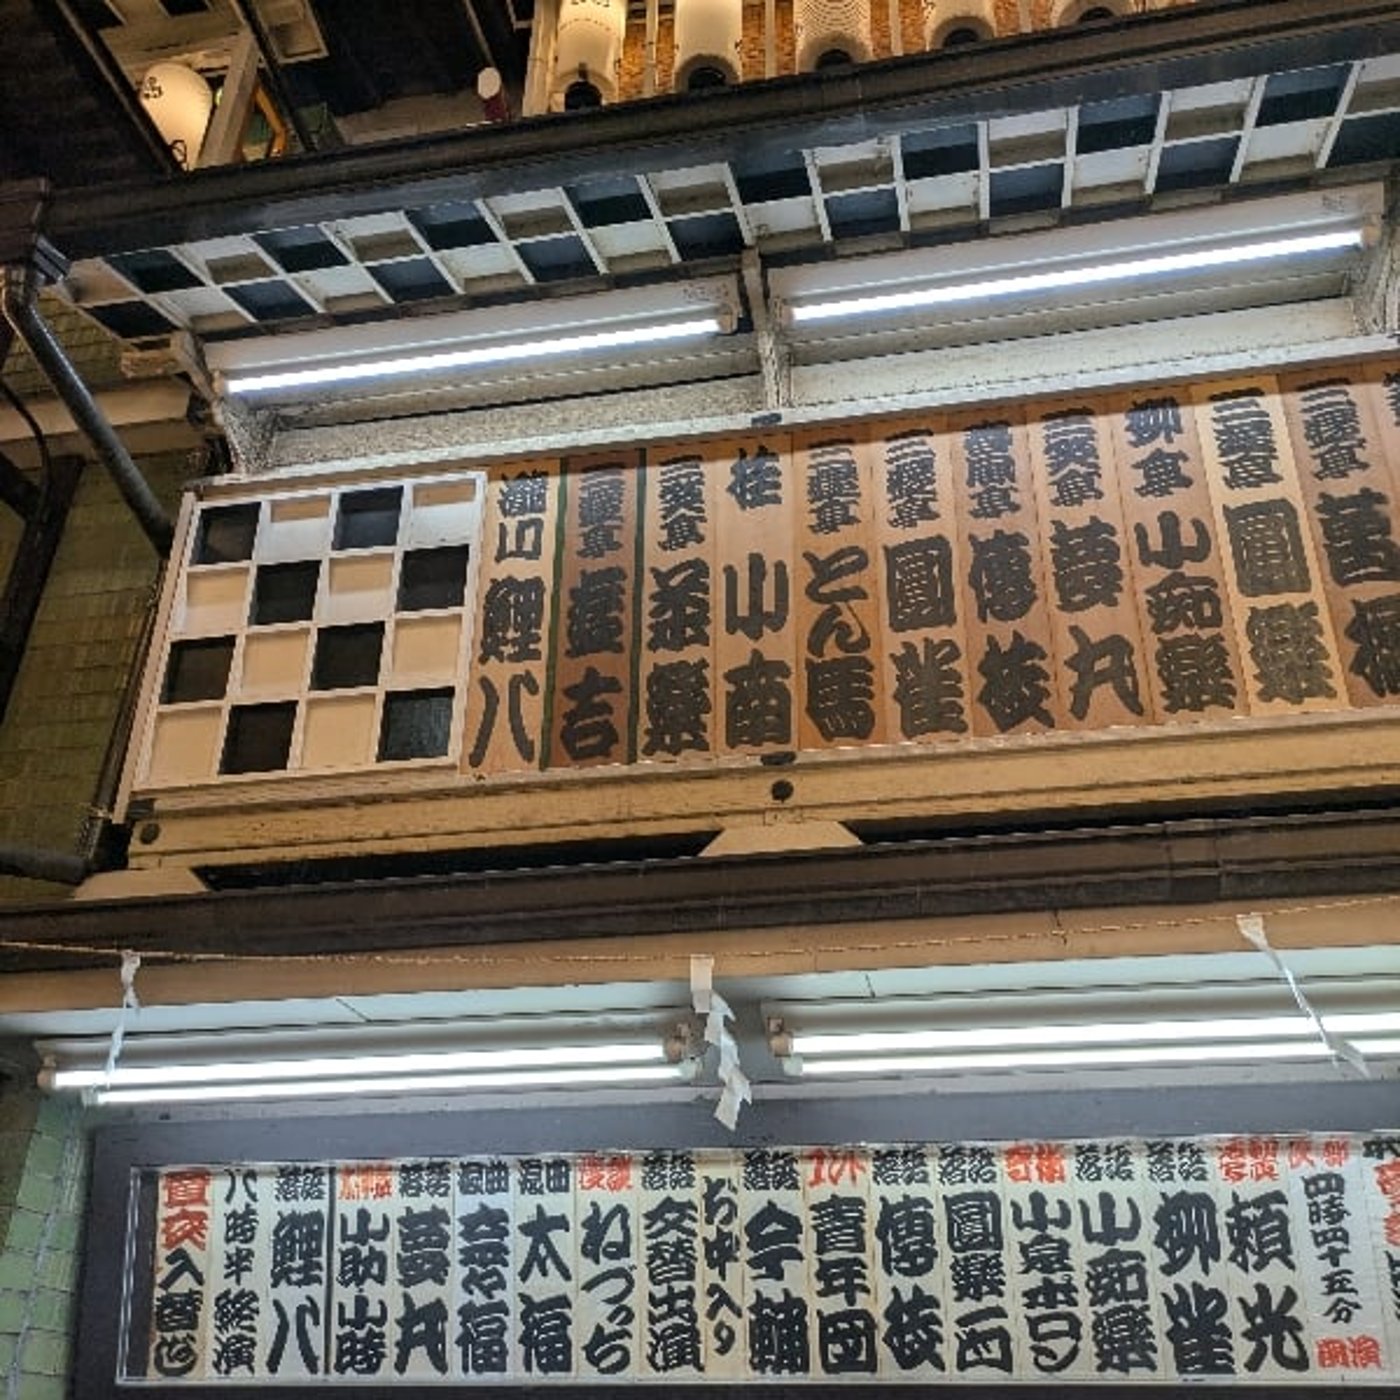 三遊亭
三遊亭 圓楽
柳亭 小痴楽
三笑亭 夢丸
春風亭 傳枝
三遊亭 圓雀
三遊亭 とん馬
桂 小南
三笑亭 茶楽
三遊亭 遊吉
瀧川 鯉八
四時四十五分 開演
頼光
落語 柳雀
落語 小痴楽
奇術 小泉ポロン
落語 圓楽一門
落語 傳枝
コント 青年団
落語 今輔
お中入り
落語 交替出演
漫談 ねづっち
浪曲 太福
浪曲 奈々福
落語 夢丸
太神楽 小助・小時
落語 鯉八
八時半終演
昼夜入替なし